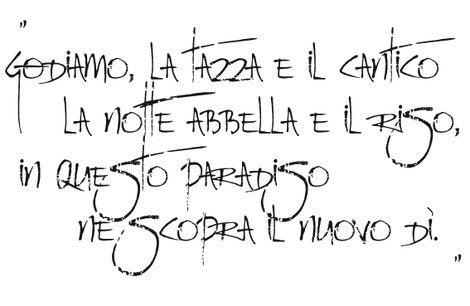 "
GODIAMO, LA TAZZA E IL CANTICO
LA NOTTE ABBELLA E IL RISO,
IN QUESTO PARADISO
NE SCOPRA IL NUOVO DÌ.
"